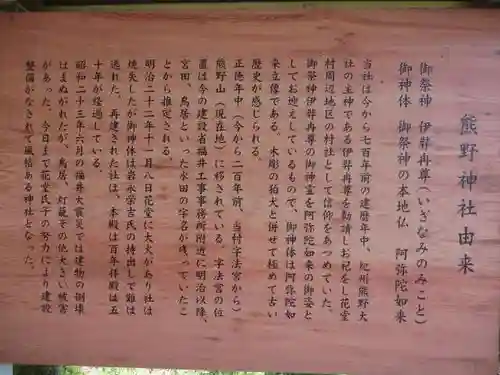 熊野神社由来
御祭神 伊弉冉尊(いざなみのみこと)
御神体 御祭神の本地仏 阿弥陀如来
当社は今から七百年前の建暦年中、紀州熊野大
社の主神である伊弉冉尊を勧請しお祀をし花堂
村周辺地区の村社として信仰をあつめていた。
御祭神伊弉冉尊の御神霊を阿弥陀如来の御姿と
してお迎えしているもので、御神体は阿弥陀如
来立像である。木彫の狛犬と併せて極めて古い
歴史が感じられる。
正徳年中(今から二百年前、当村字法宮から)
熊野山(現在地)に移されている。字法宮の位
置は今の建設省福井工事事務所附近に明治以降、
宮田、鳥居といった水田の字名が残っていたこ
とから推定される。
明治二十二年十一月八日花堂に大火があり社は
焼失したが御神体は岩永栄吉氏の持出しで難は
逃れた。再建された社は、本殿は百年拝殿は五
十年が経過している。
昭和二十三年六月の福井大震災では建物の倒壊
はまぬがれたが、鳥居、灯籠その他大きい被害
があった。今日まで花堂氏子の努力により建設
整備がなされて風格ある神社となった。